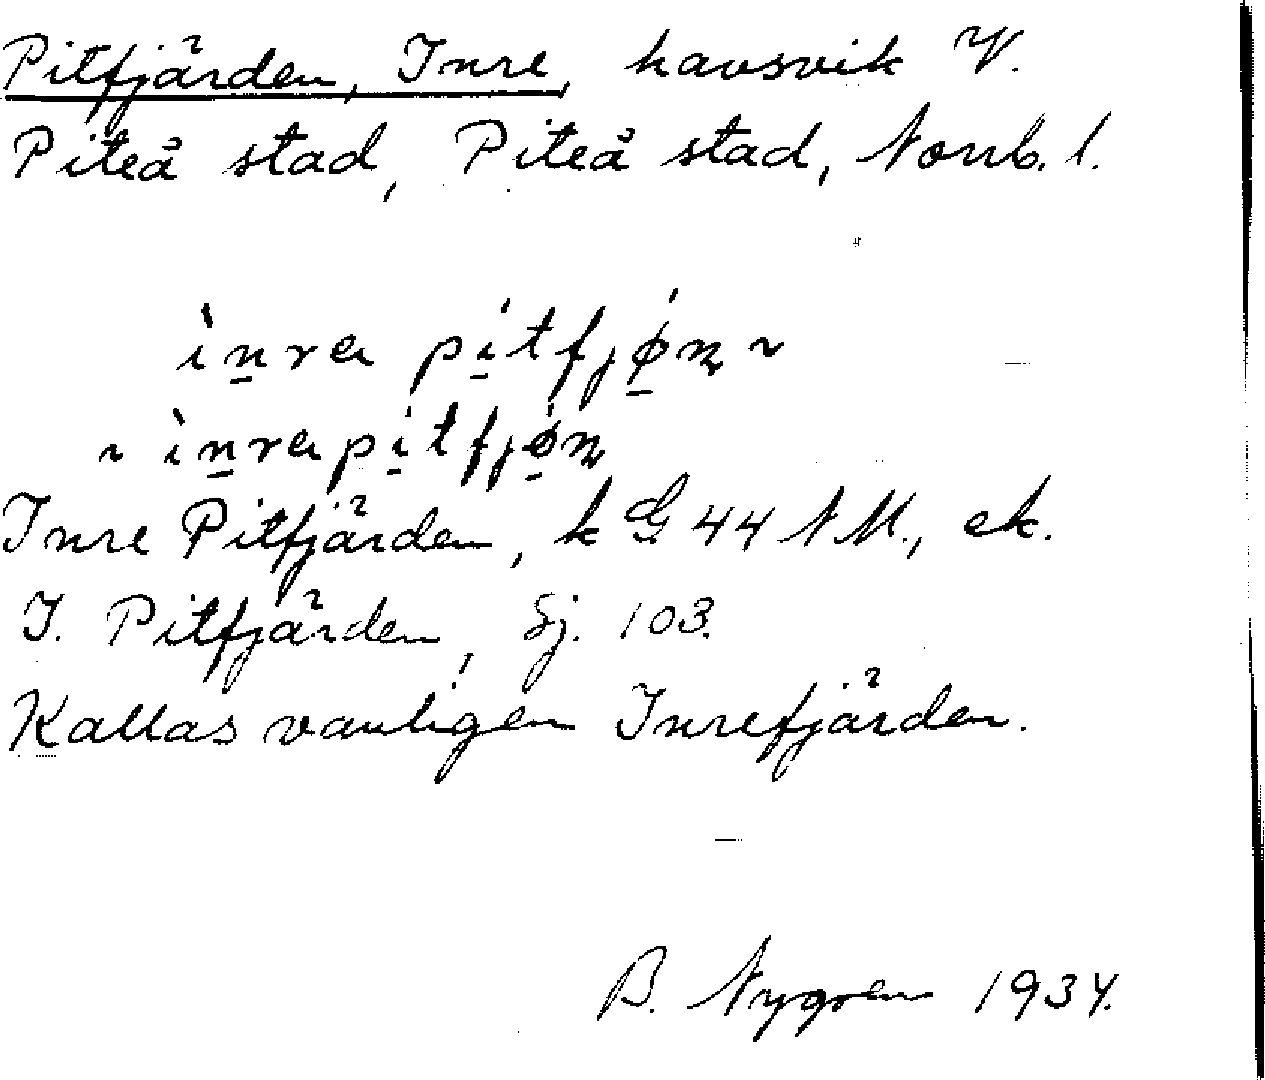 Pitfjärden, Inre, havsvik V.
Piteå stad, Piteå stad, Norrb. l.
ìn̲ra pi̲tfjø̲ɳ ~
~ ìn̲rapi̲tfjø̲ɳ
Inre Pitfjärden, k G 44 NM., ek.
I. Pitfjärden, Sj. 103.
Kallas vanligen Inrefjärden.
B. Nygren 1934.